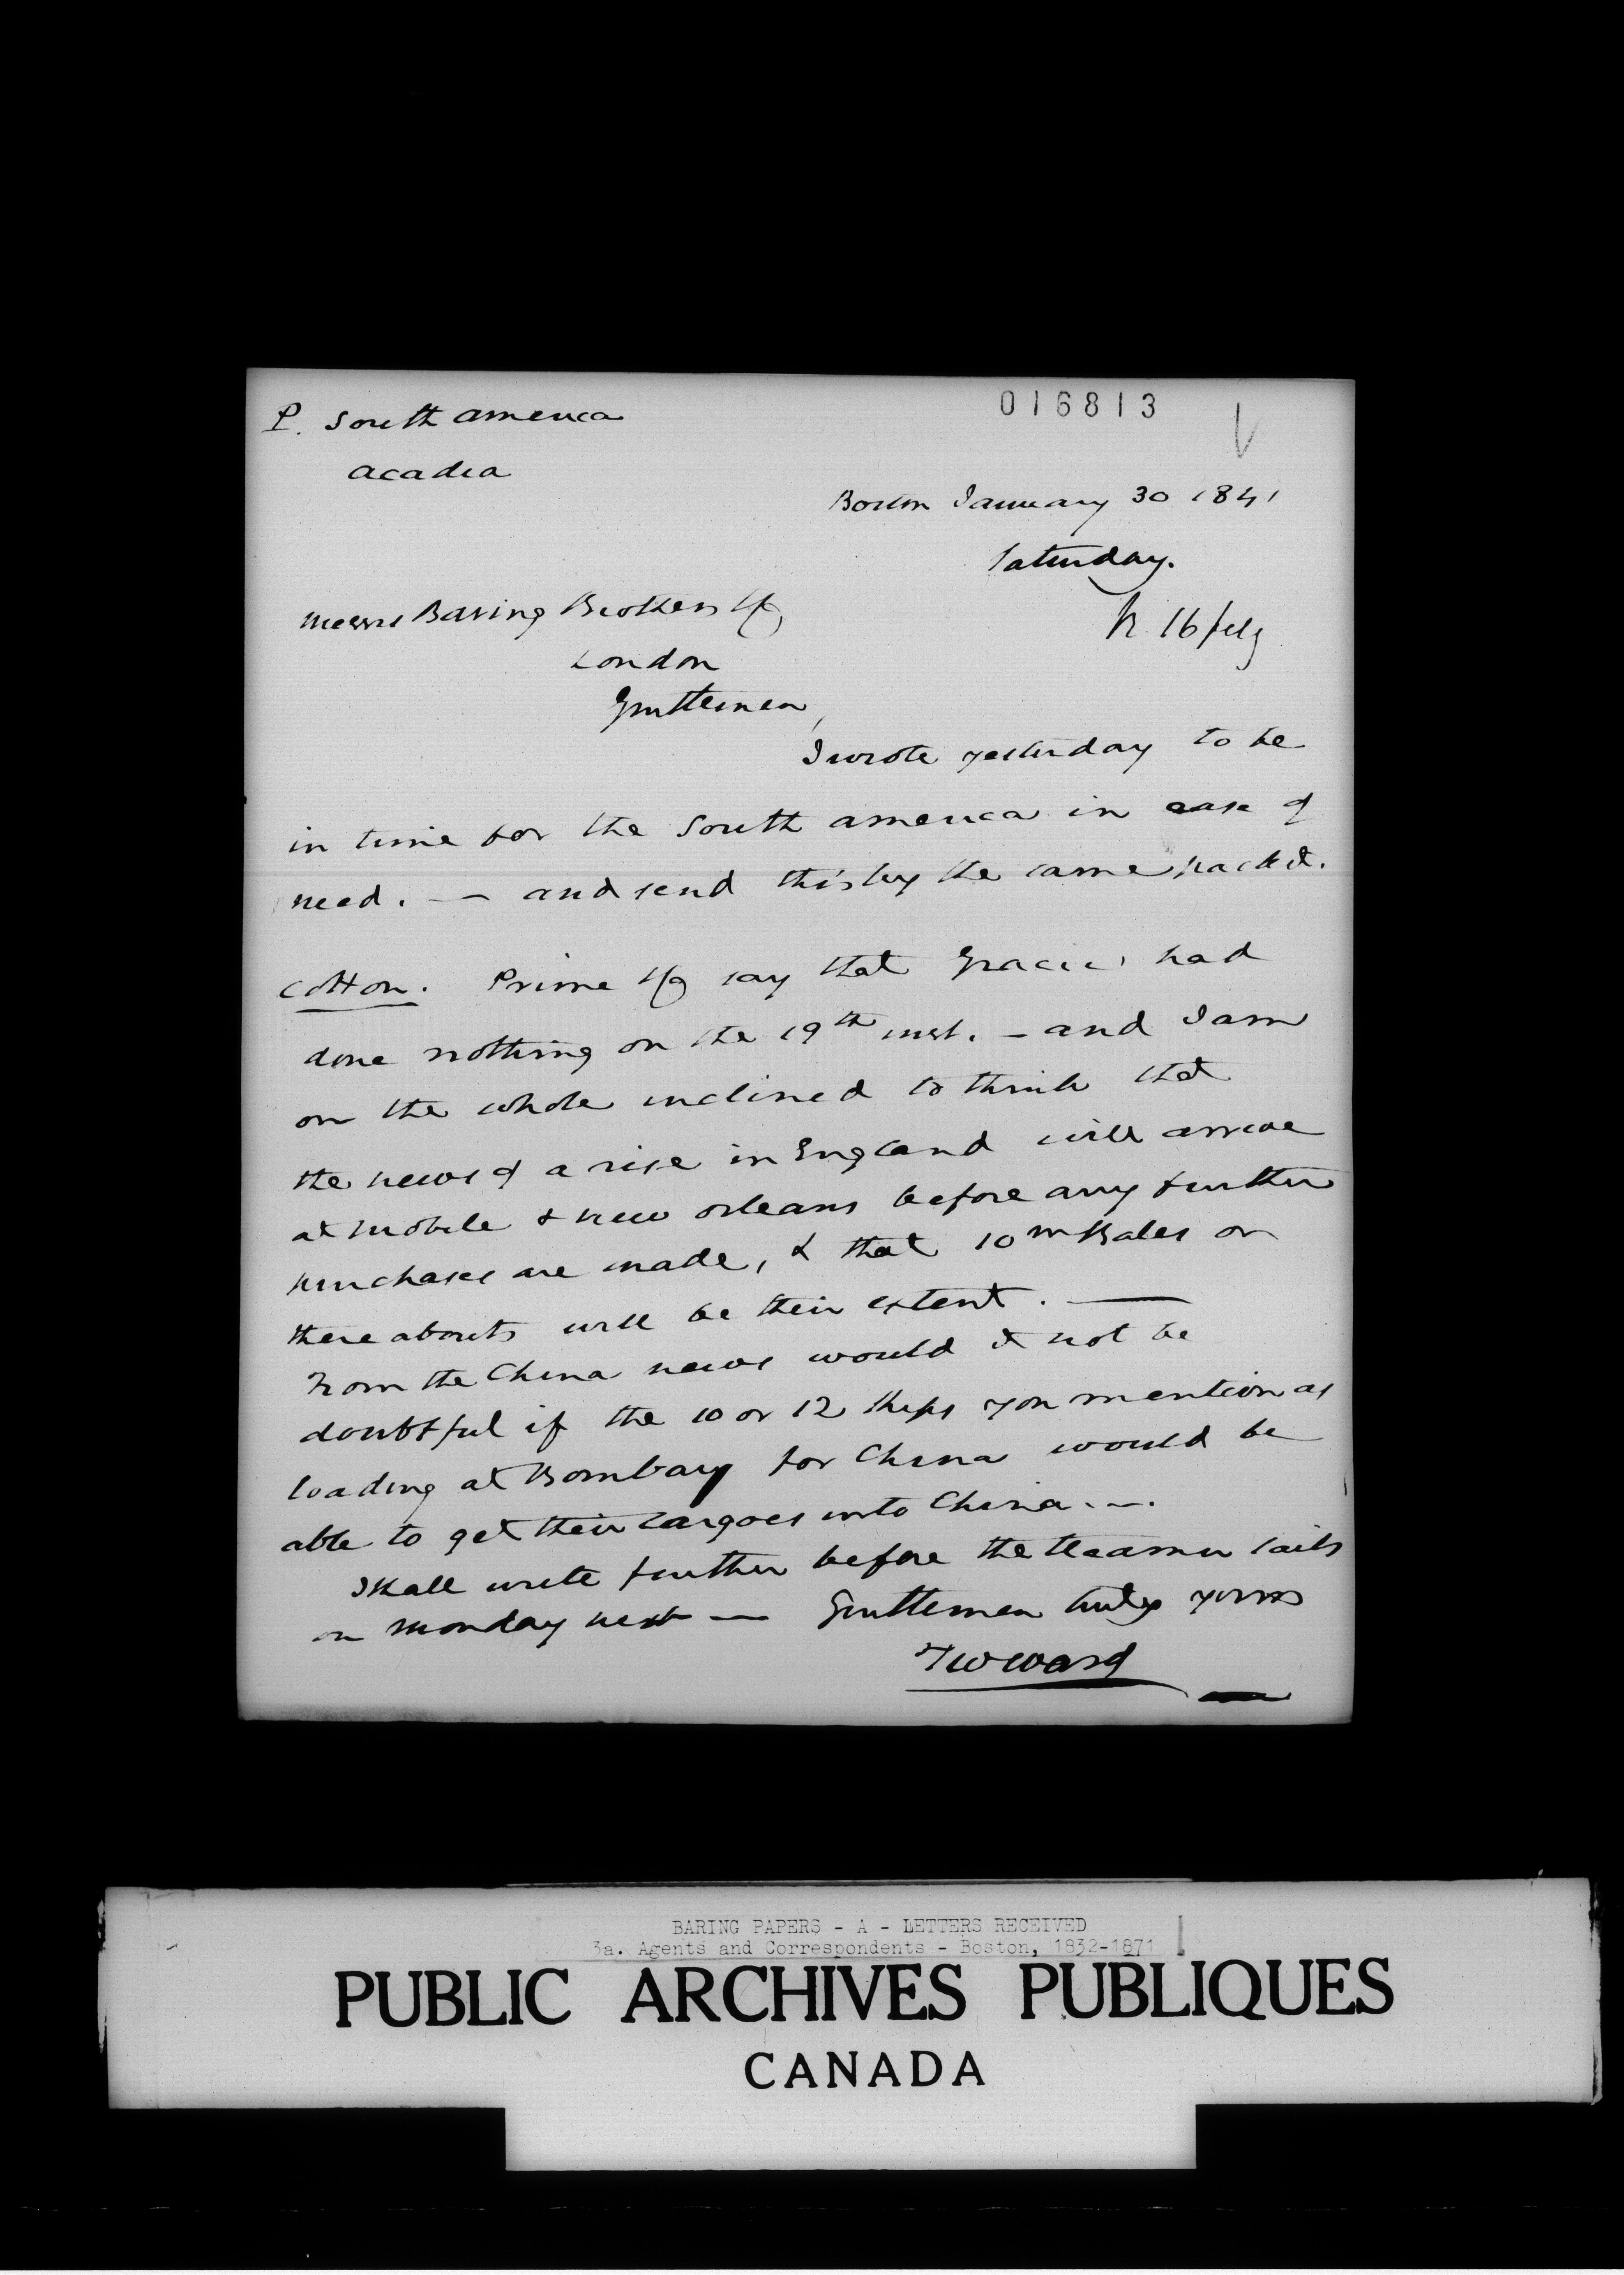 P. South America
016813
Acadia
Boston January 30 1841
Saturday.
Messrs Baring Brothers & Co
R 16 feby
London
Gentlemen,
I wrote yesterday to be
in time for the South America in case of
need. — and send this by the same packet.
Cotton. Prime & Co say that Gracie had
done nothing on the 19th inst. — and I am
on the whole inclined to think that
the news of a rise in England will arrive
at Mobile & New Orleans before any further
purchases are made, & that 10 m Bales or
thereabouts will be their extent. —
From the China news would it not be
doubtful if the 10 or 12 ships you mention as
loading at Bombay for China would be
able to get their cargoes into China. —.
I shall write further before the steamer sails
on Monday next — Gentlemen truly yours
T W Ward
BARING PAPERS - A - LETTERS RECEIVED
3a. Agents and Correspondents - Boston, 1832-1871
PUBLIC ARCHIVES PUBLIQUES
CANADA